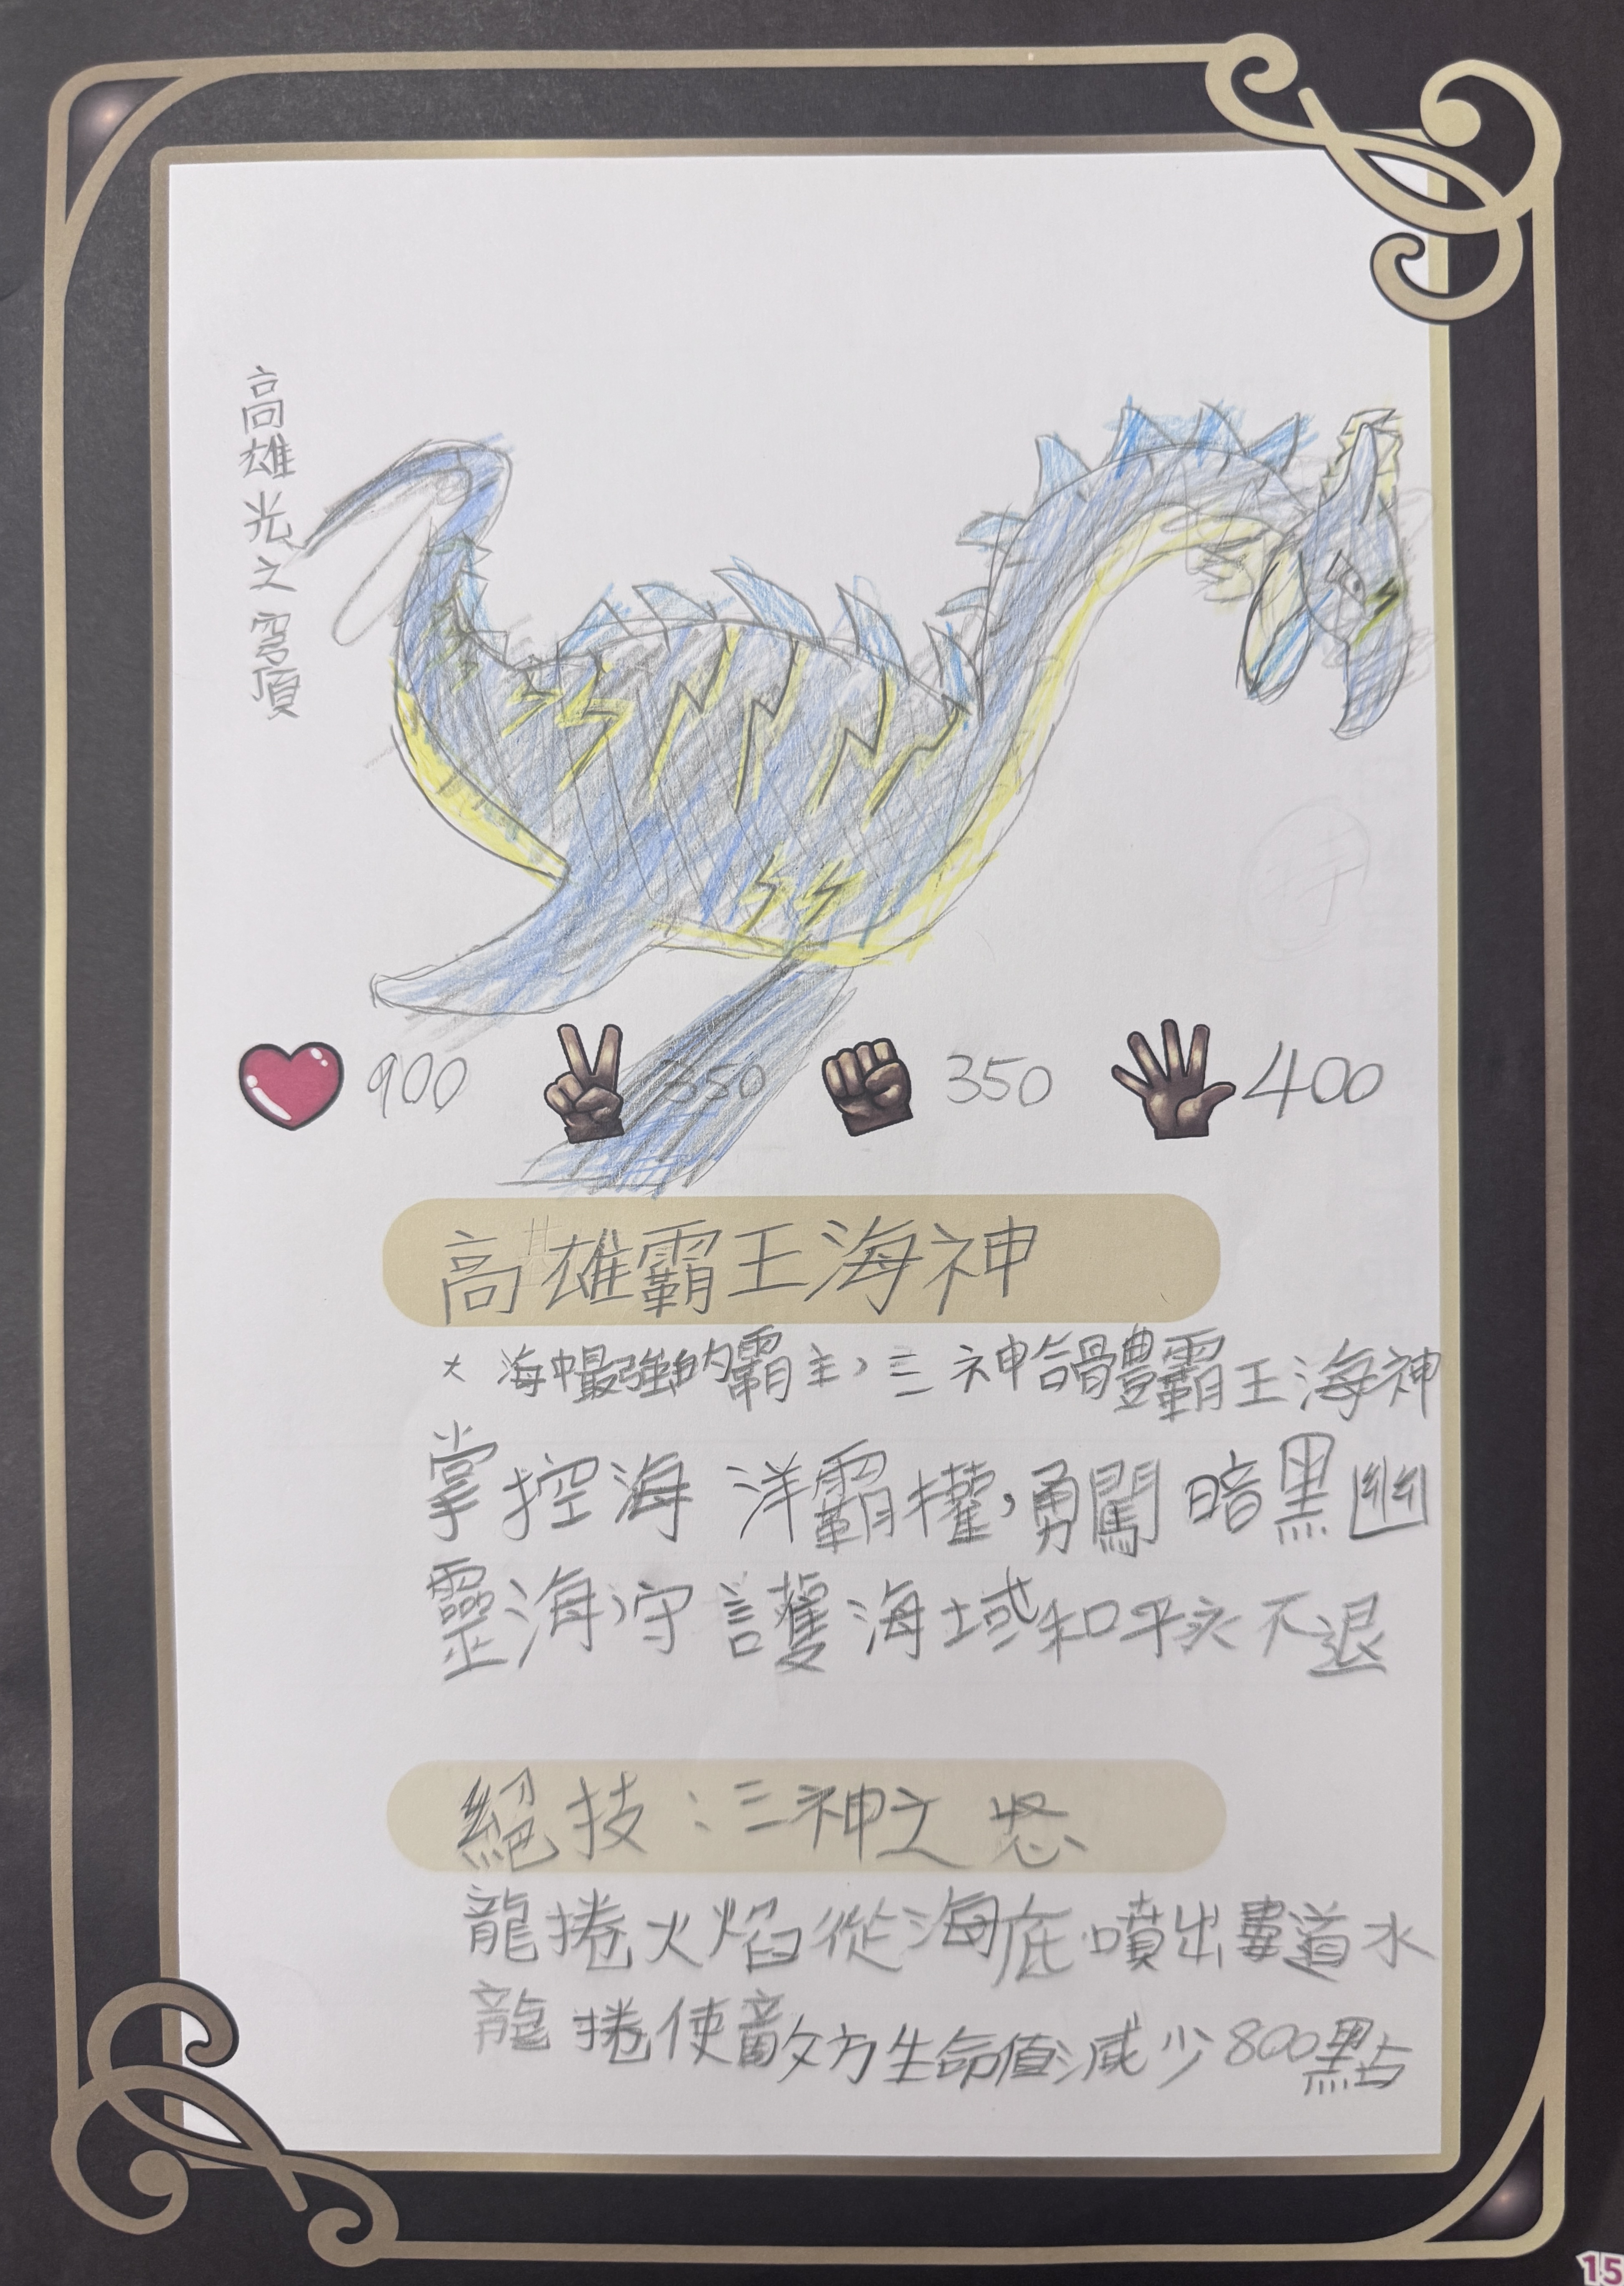 高雄光之穹頂
900 350 350 400
高雄霸王海神
海中最強的霸主，三神合體霸王海神
掌控海洋霸權，勇闖暗黑幽
靈海守護海域和平永不退
絕技：三神之怒
龍捲火焰從海底噴出霸道水
龍捲使敵方生命值減少800點
15